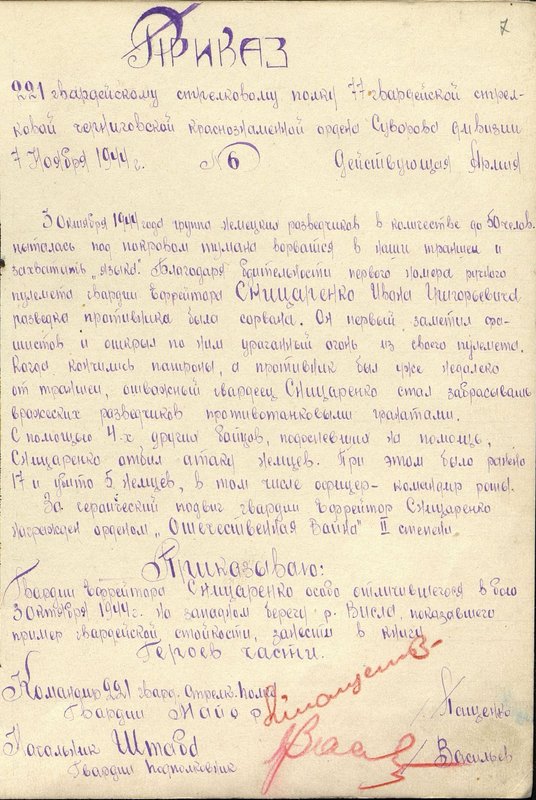 7
Приказ
221 гвардейскому стрелковому полку 77 гвардейской стрел-
ковой черниговской краснознаменной ордена Суворова дивизии
7 Ноября 1944 г. № 6 Действующая Армия
3 октября 1944 года группа немецких разведчиков в количестве до 50 человек
пыталась под покровом тумана ворваться в наши траншеи и
захватить „языка“. Благодаря бдительности первого номера ручного
пулемета гвардии Ефрейтора Снищаренко Ивана Григорьевича
разведка противника была сорвана. Он первый заметил фа-
шистов и открыл по ним ураганный огонь из своего пулемета.
Когда кончились патроны, а противник был уже недалеко
от траншеи, отважный гвардеец Снищаренко стал забрасывать
вражеских разведчиков противотанковыми гранатами.
С помощью 4-х других бойцов, подоспевших на помощь,
Снищаренко отбил атаку немцев. При этом было ранено
17 и убито 5 немцев, в том числе офицер- командир роты.
За героический подвиг гвардии Ефрейтор Снищаренко
награжден орденом „Отечественная Война“ II степени.
Приказываю:
Гвардии Ефрейтора Снищаренко особо отличившегося в бою
3 октября 1944 г. на западном берегу р. Висла, показавшего
пример гвардейской стойкости, занести в книгу
Героев части.
Командир 221 гвард. стрелк. полка
Гвардии Майор /Пащенко
Начальник Штаба
Гвардии подполковник /Васильев